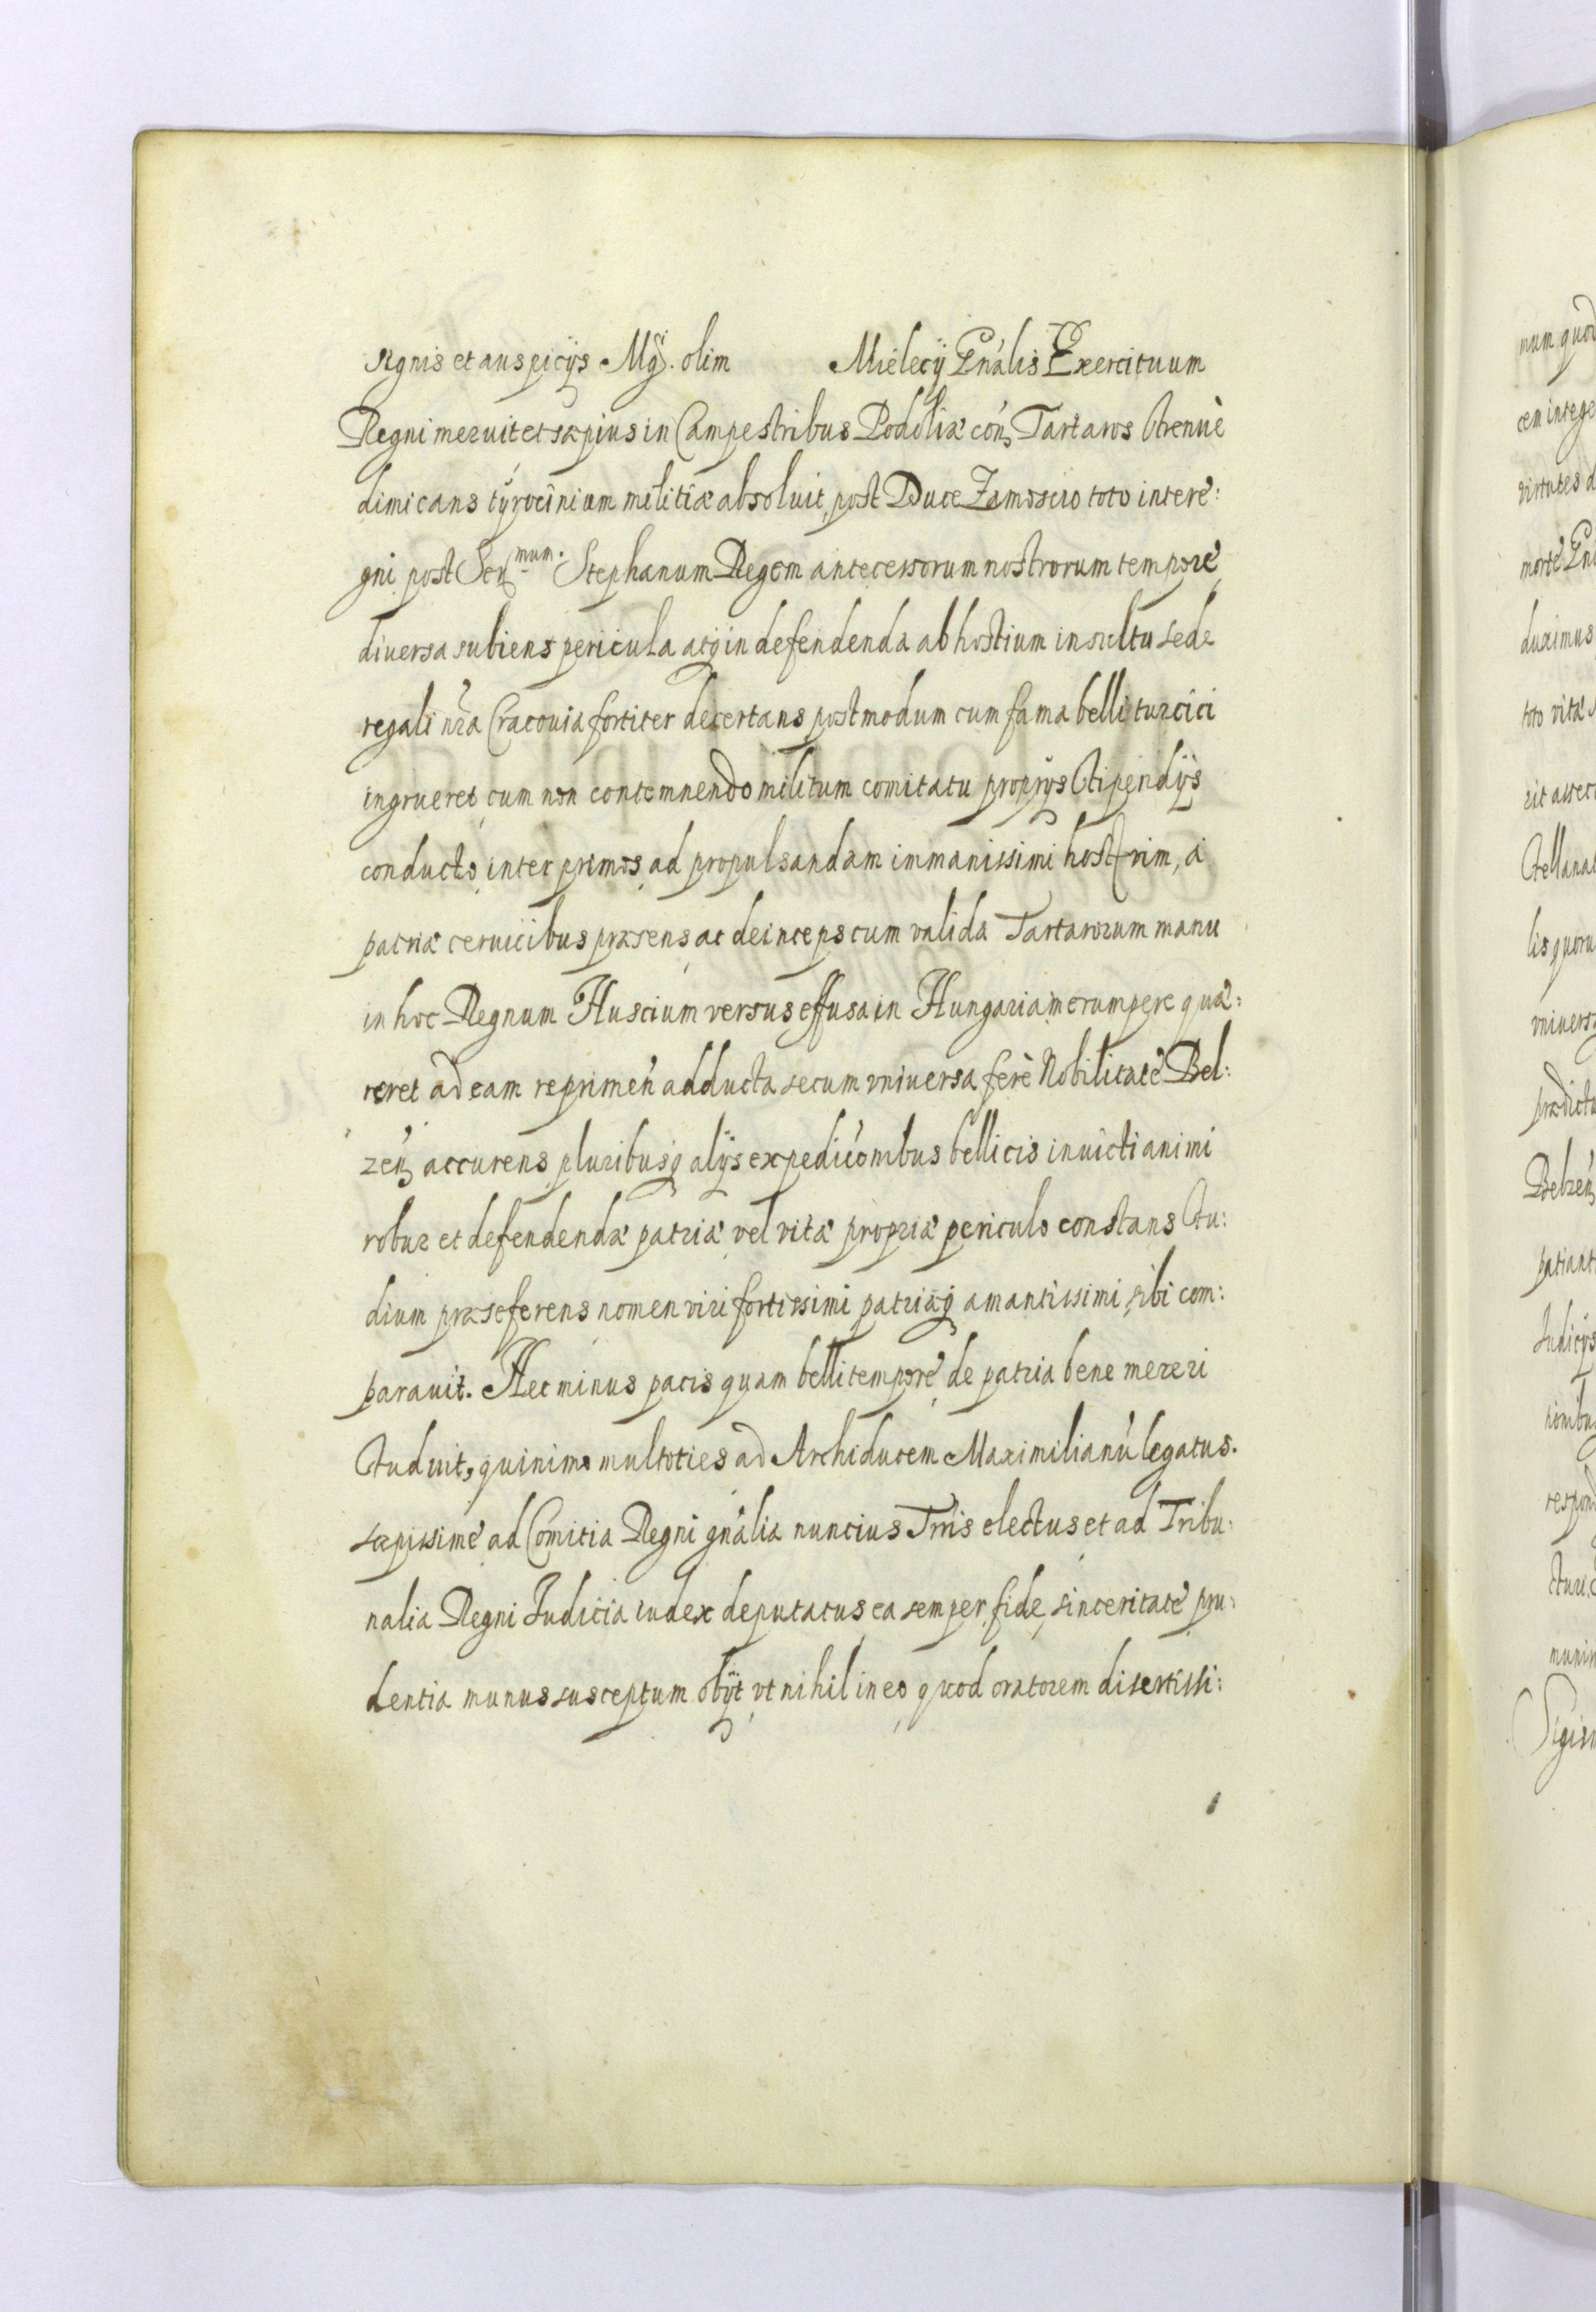 signis et auspicÿs Mgci. olim Mielecÿ Gnális Exercituum
Regni meruit et sæpius in Campestribus Podoliæ cón Tartaros strenuè
dimicans tÿrocinium militiæ absoluit, post Duce Zamoscio toto interé:
gni post Sern mum. Stephanum Regem antecessorum nostrorum temporé
diuersa subiens pericula atq in defendenda ab hostium insultu sede
regali nra Cracouia fortiter decertans postmodum cum fama belli turcici
ingrueret cum non contemnendo militum comitatu proprÿs stipendÿs
conducto, inter primos, ad propulsandam immanissimi host vim, à
patriæ ceruicibus præsens, ac deinceps cum valida Tartarorum manu
in hoc Regnum Huscium versus effusa in Hungariam erumpere quæ:
reret ad eam reprimen adducta secum vniuersa ferè Nobilitaté Bel:
zén accurens, pluribusq alÿs expedicionibus bellicis inuicti animi
robur et defendendæ patriæ, vel vitæ propriæ periculo constans stu:
dium præseferens nomen viri fortissimi patriæq amantissimi, sibi com:
parauit. Nec minus pacis quam belli temporé, de patria bene mereri
studuit, quinimo multoties ad Archiducem Maximilianú legatus.
sæpissimé ad Comitia Regni gnália nuncius Trris electus et ad Tribu:
nalia Regni Iudicia iudex deputatus, ea semper fide, sinceritaté pru:
dentia munus susceptum obÿt, vt nihil in eo, quod oratorem disertissi:
num quod
cem integr
virtutes d
morté Gná
duximus
toto vitæ
rit assec
stellanat
lis quoru
vniuers
prædictu
Belzén
patiant
Iudicÿs
nionibu
respond
munim
Sigism